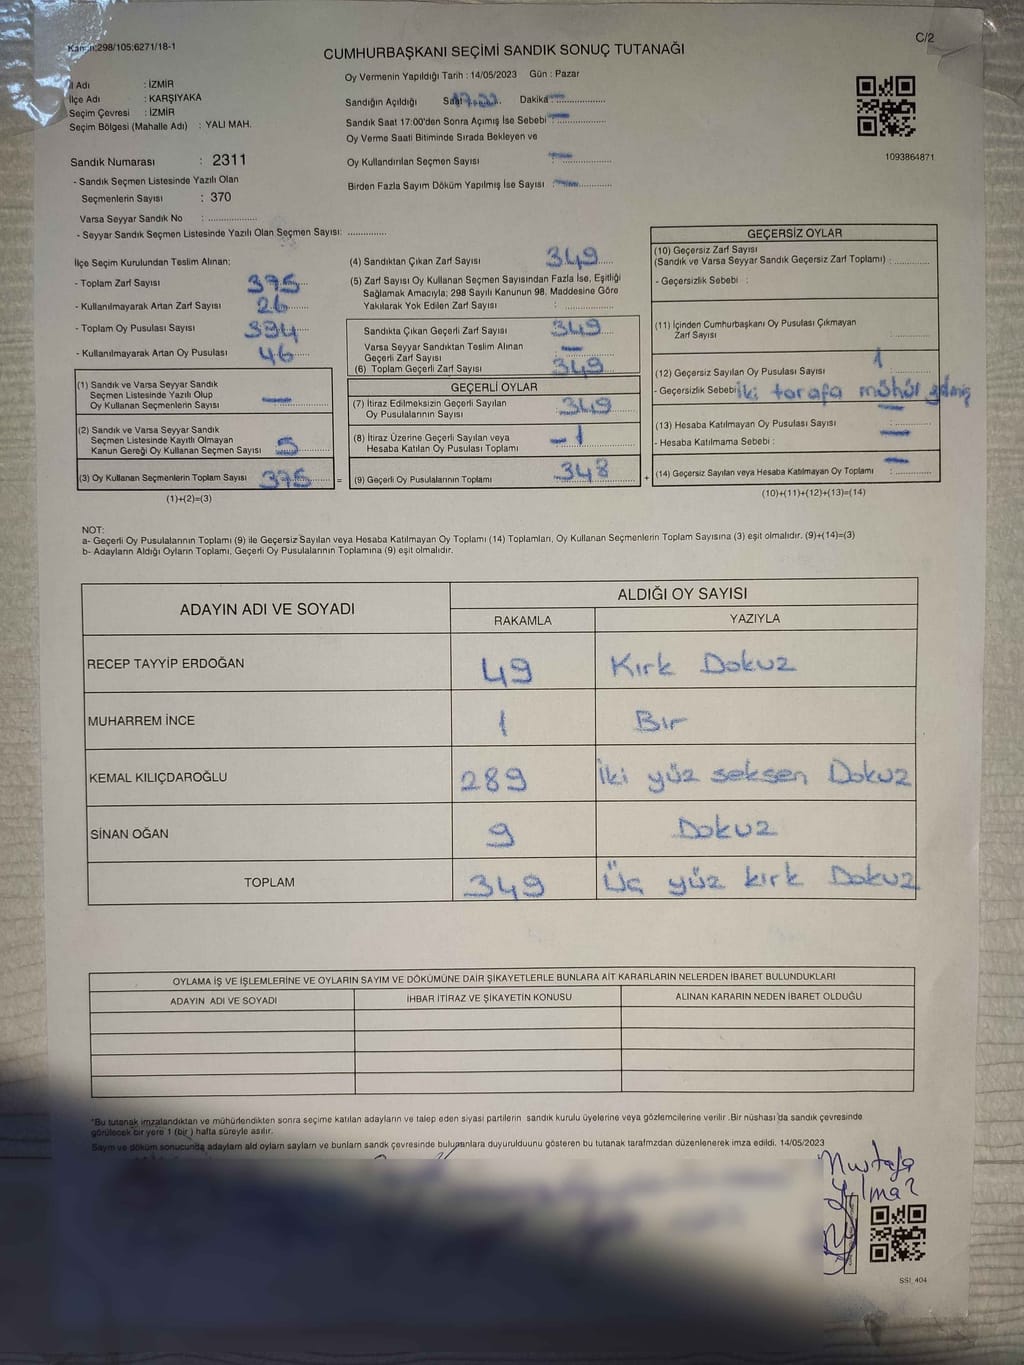 Kanun:298/105;6271/18-1
C/2
CUMHURBAŞKANI SEÇİMİ SANDIK SONUÇ TUTANAĞI
İl Adı : İZMİR
İlçe Adı : KARŞIYAKA
Seçim Çevresi : İZMİR
Seçim Bölgesi (Mahalle Adı) : YALI MAH.
Oy Vermenin Yapıldığı Tarih : 14/05/2023 Gün : Pazar
Sandığın Açıldığı Saat Dakika : –
Sandık Saat 17:00'den Sonra Açımış İse Sebebi : –
Oy Verme Saati Bitiminde Sırada Bekleyen ve
Oy Kullandırılan Seçmen Sayısı –
Birden Fazla Sayım Döküm Yapılmış İse Sayısı : –
1093864871
Sandık Numarası : 2311
- Sandık Seçmen Listesinde Yazılı Olan
Seçmenlerin Sayısı : 370
Varsa Seyyar Sandık No : ..................
- Seyyar Sandık Seçmen Listesinde Yazılı Olan Seçmen Sayısı: ..............
İlçe Seçim Kurulundan Teslim Alınan:
- Toplam Zarf Sayısı 375
- Kullanılmayarak Artan Zarf Sayısı 26
- Toplam Oy Pusulası Sayısı 394
- Kullanılmayarak Artan Oy Pusulası 46
(1) Sandık ve Varsa Seyyar Sandık
Seçmen Listesinde Yazılı Olup
Oy Kullanan Seçmenlerin Sayısı –
(2) Sandık ve Varsa Seyyar Sandık
Seçmen Listesinde Kayıtlı Olmayan
Kanun Gereği Oy Kullanan Seçmen Sayısı 5
(3) Oy Kullanan Seçmenlerin Toplam Sayısı 375
(1)+(2)=(3)
(4) Sandıktan Çıkan Zarf Sayısı 349
(5) Zarf Sayısı Oy Kullanan Seçmen Sayısından Fazla İse, Eşitliği
Sağlamak Amacıyla; 298 Sayılı Kanunun 98. Maddesine Göre
Yakılarak Yok Edilen Zarf Sayısı : ..............
Sandıkta Çıkan Geçerli Zarf Sayısı 349
Varsa Seyyar Sandıktan Teslim Alınan
Geçerli Zarf Sayısı –
(6) Toplam Geçerli Zarf Sayısı 349
GEÇERLİ OYLAR
(7) İtiraz Edilmeksizin Geçerli Sayılan
Oy Pusulalarının Sayısı : 349
(8) İtiraz Üzerine Geçerli Sayılan veya
Hesaba Katılan Oy Pusulası Toplamı – 1
= (9) Geçerli Oy Pusulalarının Toplamı 348 +
GEÇERSİZ OYLAR
(10) Geçersiz Zarf Sayısı
(Sandık ve Varsa Seyyar Sandık Geçersiz Zarf Toplamı) : ............
- Geçersizlik Sebebi :
(11) İçinden Cumhurbaşkanı Oy Pusulası Çıkmayan
Zarf Sayısı
(12) Geçersiz Sayılan Oy Pusulası Sayısı 1
- Geçersizlik Sebebi iki tarafa mühür
(13) Hesaba Katılmayan Oy Pusulası Sayısı –
- Hesaba Katılmama Sebebi : –
(14) Geçersiz Sayılan veya Hesaba Katılmayan Oy Toplamı –
(10)+(11)+(12)+(13)=(14)
NOT:
a- Geçerli Oy Pusulalarının Toplamı (9) ile Geçersiz Sayılan veya Hesaba Katılmayan Oy Toplamı (14) Toplamları, Oy Kullanan Seçmenlerin Toplam Sayısına (3) eşit olmalıdır. (9)+(14)=(3)
b- Adayların Aldığı Oyların Toplamı, Geçerli Oy Pusulalarının Toplamına (9) eşit olmalıdır.
ADAYIN ADI VE SOYADI ALDIĞI OY SAYISI
RAKAMLA YAZIYLA
RECEP TAYYİP ERDOĞAN 49 Kırk Dokuz
MUHARREM İNCE 1 Bir
KEMAL KILIÇDAROĞLU 289 İki yüz seksen Dokuz
SİNAN OĞAN 9 Dokuz
TOPLAM 349 Üç yüz kırk Dokuz
OYLAMA İŞ VE İŞLEMLERİNE VE OYLARIN SAYIM VE DÖKÜMÜNE DAİR ŞİKAYETLERLE BUNLARA AİT KARARLARIN NELERDEN İBARET BULUNDUKLARI
ADAYIN ADI VE SOYADI İHBAR İTİRAZ VE ŞİKAYETİN KONUSU ALINAN KARARIN NEDEN İBARET OLDUĞU
*Bu tutanak imzalandıktan ve mühürlendikten sonra seçime katılan adayların ve talep eden siyasi partilerin sandık kurulu üyelerine veya gözlemcilerine verilir .Bir nüshası da sandık çevresinde
görülecek bir yere 1 (bir ) hafta süreyle asılır.
Sayım ve döküm sonucunda adaylam ald oylam saylam ve bunlam sandk çevresinde bulunanlara duyurulduunu gösteren bu tutanak tarafmzdan düzenlenerek imza edildi. 14/05/2023
Mustafa
Yılmaz
SSI_404